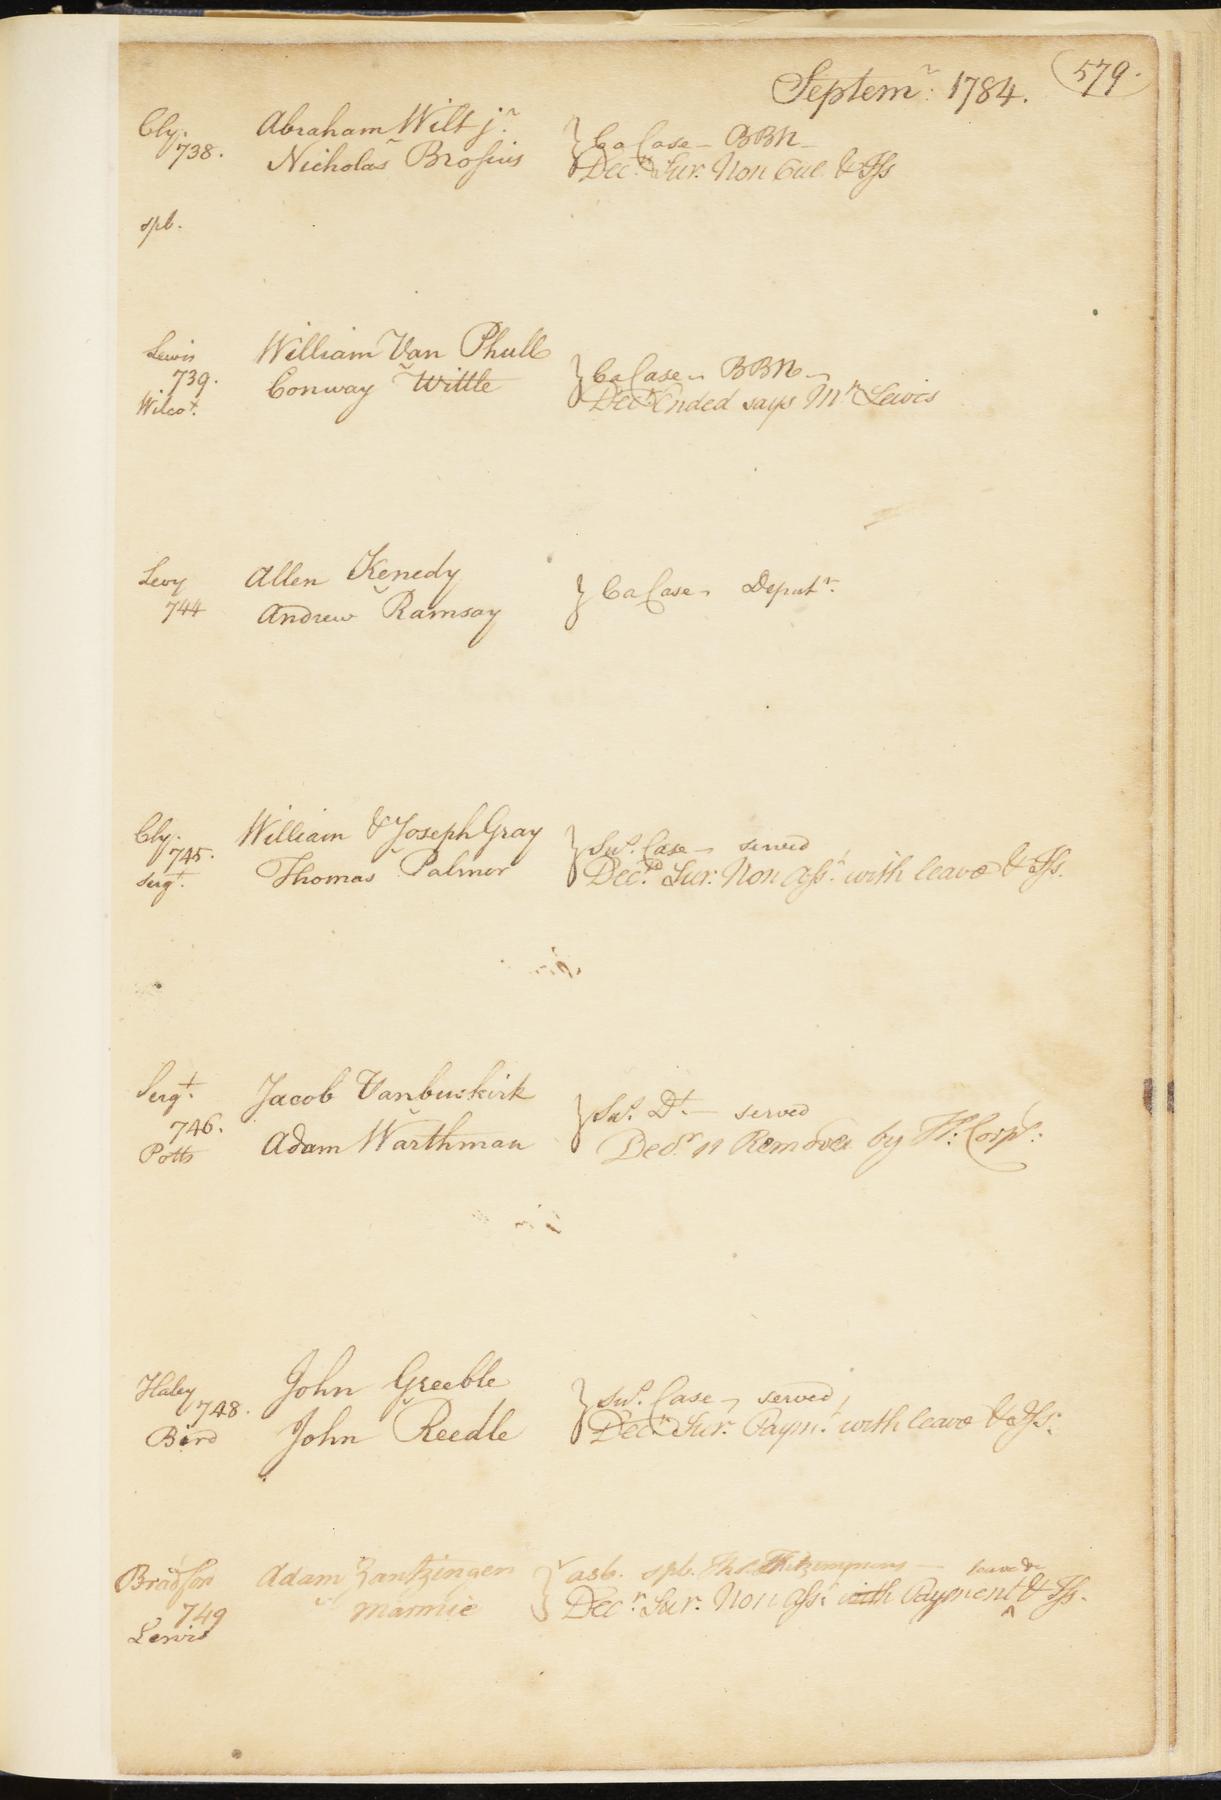 Septemr: 1784. 579.
Cly. Abraham Wilt jr.
738. Nicholas Brosius
Ca Case BBN
Decr. Nar. Non Cul & Iss
spb.
Lewis William Van Phull
739. Conway Wittle
Wilcox.
Ca Case BBN
Decr. Ended says Mr Lewis
Levy Allen Kenedy
744 Andrew Ramsay
Ca Case
Cly. William & Joseph Gray
745. Thomas Palmer
Sergt.
Case served
Nar. Non Ass. with leave & Iss.
Sergt. Jacob Vanbuskirk
746. Adam Warthman
Potts
served
Removed by
Haley John Greeble
748. John Reedle
Bird
Case served
Decr. Nar. Paymt. with leave & Iss.
Bradford Adam Zantzinger
749 Marmie
Lewis
spb.
leave &
Decr. Nar. Non Ass. with Payment & Iss.